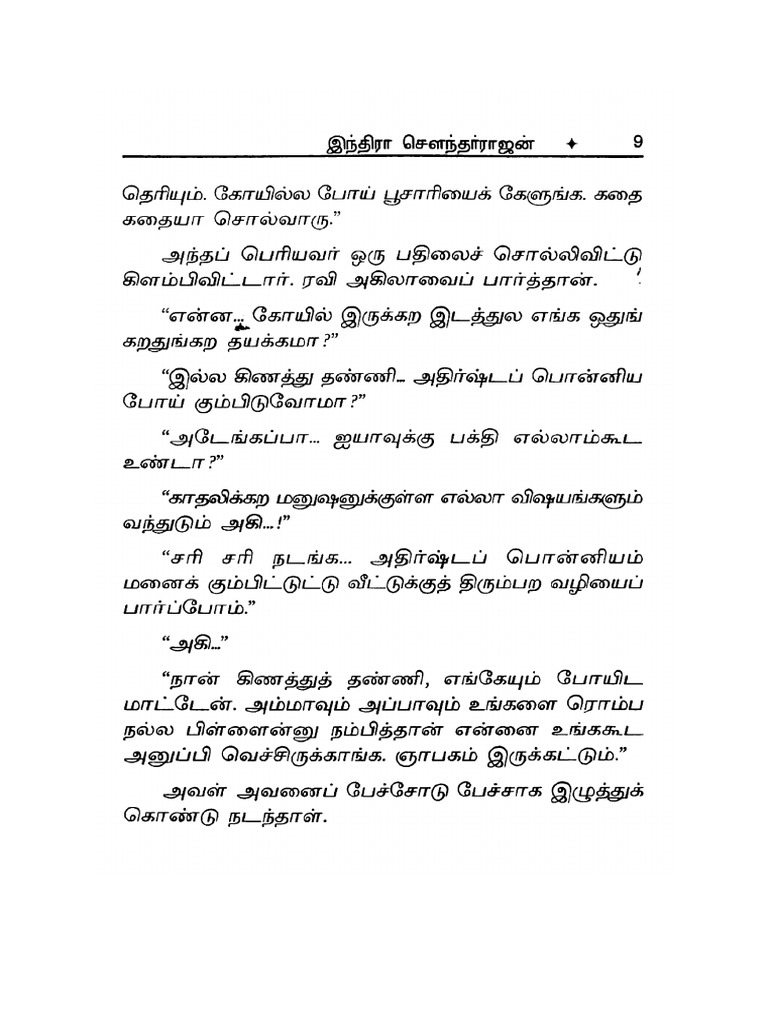 இந்திரா சௌந்தர்ராஜன் ✦ 9
தெரியும். கோயில்ல போய் பூசாரியைக் கேளுங்க. கதை
கதையா சொல்வாரு.”
அந்தப் பெரியவர் ஒரு பதிலைச் சொல்லிவிட்டு
கிளம்பிவிட்டார். ரவி அகிலாவைப் பார்த்தான்.
“என்ன... கோயில் இருக்கற இடத்துல எங்க ஒதுங்
கறதுங்கற தயக்கமா?”
“இல்ல கிணத்து தண்ணி... அதிர்ஷ்டப் பொன்னிய
போய் கும்பிடுவோமா?”
“அடேங்கப்பா... ஐயாவுக்கு பக்தி எல்லாம்கூட
உண்டா?”
“காதலிக்கற மனுஷனுக்குள்ள எல்லா விஷயங்களும்
வந்துடும் அகி...!”
“சரி சரி நடங்க... அதிர்ஷ்டப் பொன்னியம்
மனைக் கும்பிட்டுட்டு வீட்டுக்குத் திரும்பற வழியைப்
பார்ப்போம்.”
“அகி...”
“நான் கிணத்துத் தண்ணி, எங்கேயும் போயிட
மாட்டேன். அம்மாவும் அப்பாவும் உங்களை ரொம்ப
நல்ல பிள்ளைன்னு நம்பித்தான் என்னை உங்ககூட
அனுப்பி வெச்சிருக்காங்க. ஞாபகம் இருக்கட்டும்.”
அவள் அவனைப் பேச்சோடு பேச்சாக இழுத்துக்
கொண்டு நடந்தாள்.